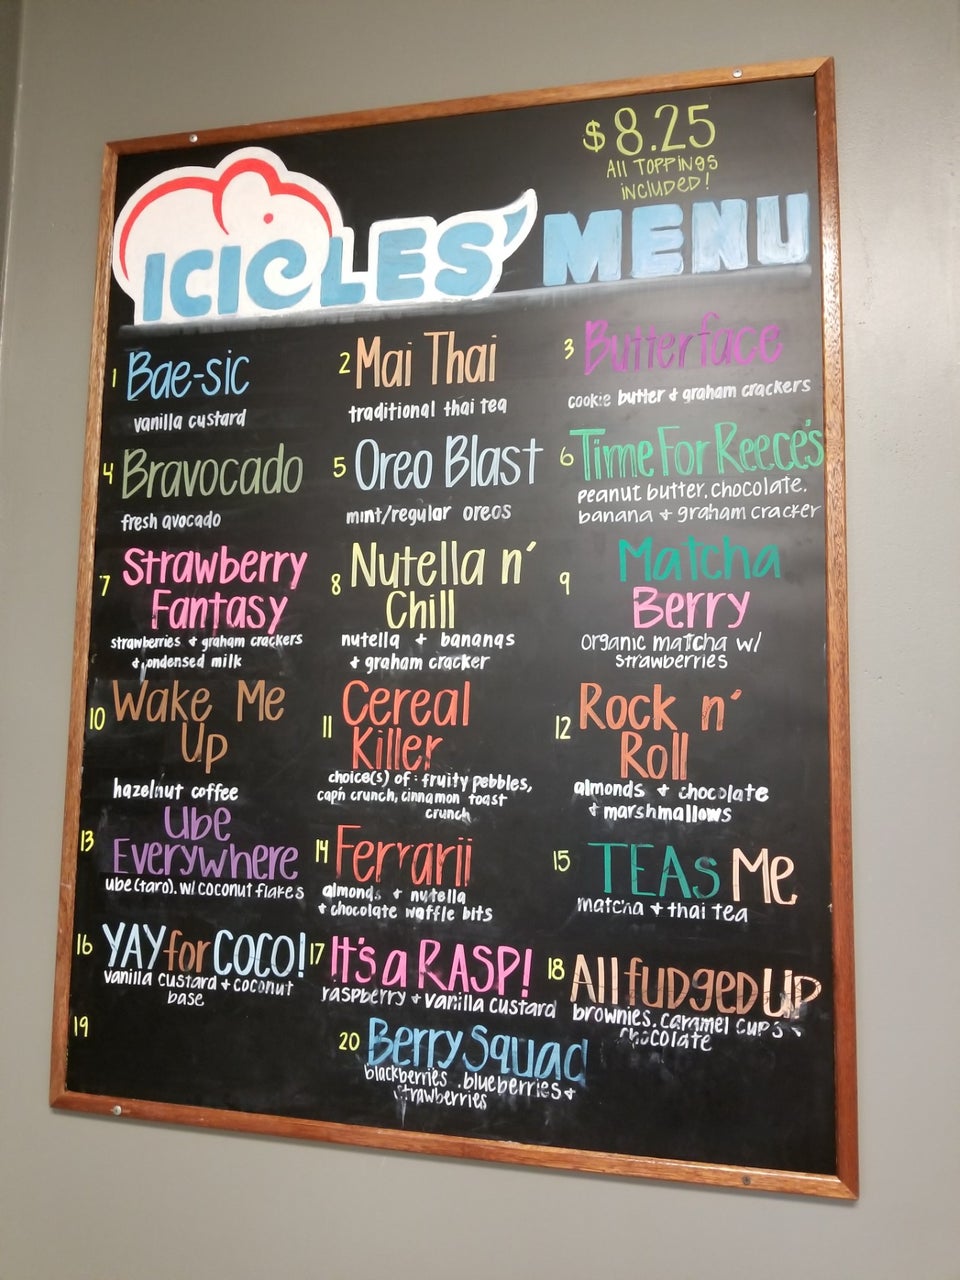 $8.25
All Toppings
included!
ICICLES' MENU
1 Bae-sic
vanilla custard
2 Mai Thai
traditional thai tea
3 Butterface
cookie butter & graham crackers
4 Bravocado
fresh avocado
5 Oreo Blast
mint/regular oreos
6 Time For Reece's
peanut butter, chocolate,
banana & graham cracker
7 Strawberry
Fantasy
strawberries & graham crackers
& condensed milk
8 Nutella n'
Chill
nutella + bananas
& graham cracker
9 Matcha
Berry
organic matcha w/
strawberries
10 Wake Me
Up
hazelnut coffee
11 Cereal
Killer
choice(s) of: fruity pebbles,
cap'n crunch, cinnamon toast
crunch
12 Rock n'
Roll
almonds & chocolate
& marshmallows
13 Ube
Everywhere
ube (taro). w/ coconut flakes
14 Ferrarii
almonds + nutella
& chocolate waffle bits
15 TEAs Me
matcha + thai tea
16 YAY for COCO!
vanilla custard + coconut
base
17 It's a RASP!
raspberry & vanilla custard
18 All fudged UP
brownies, caramel cups &
chocolate
19
20 Berry Squad
blackberries, blueberries &
strawberries